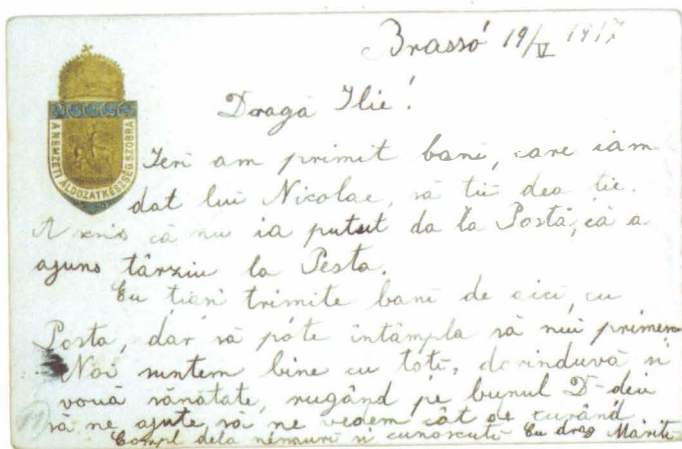 Brassó 19/V 1917
A NEMZETI ÁLDOZATKÉSZSÉG SZOBRA
Dragă Ilie!
Ieri am primit bani, care iam
dat lui Nicolae, să tii dea tie.
A scris că nu ia putut da la Postă, că a
ajuns târziu la Pesta.
Eu tiasi trimite bani de aici, cu
Posta, dar să póte întâmpla să nui primesti
Noi suntem bine cu toti, dorinduvă si
vouă sănătate, rugând pe bunul D-deu
să ne ajute, să ne vedem cât de curând
Compl dela nemuri si cunoscuti Eu drag Măriti
11